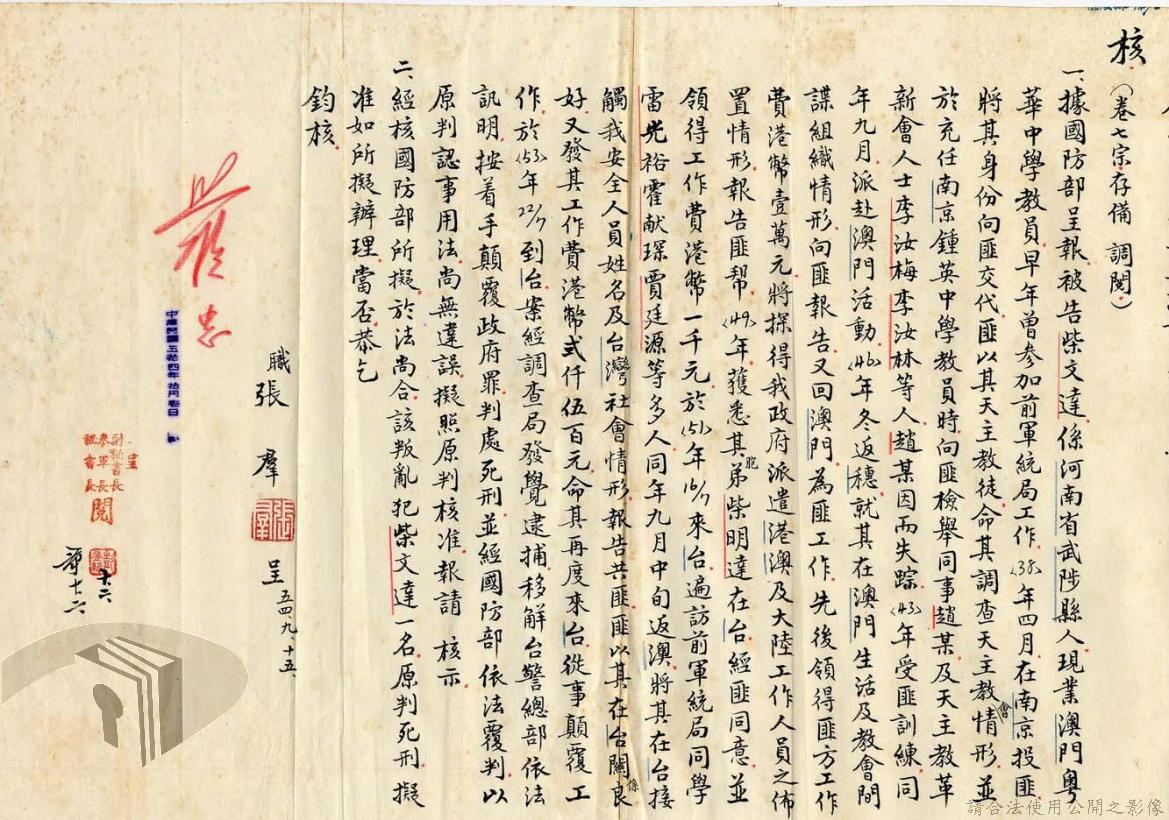 核(卷七宗存備 調閱)
一、據國防部呈報被告柴文達係河南省武陟縣人現業澳門粵
華中學教員早年曾參加前軍統局工作(38)年四月在南京投匪
將其身份向匪交代匪以其天主教徒命其調查天主教會情形並
於充任南京鍾英中學教員時向匪檢舉同事趙某及天主教革
新會人士李汝梅李汝林等人趙某因而失踪(43)年受匪訓練同
年九月派赴澳門活動(46)年冬返穗就其在澳門生活及教會間
諜組織情形向匪報告又回澳門為匪工作先後領得匪方工作
費港幣壹萬元將探得我政府派遣港澳及大陸工作人員之佈
置情形報告匪幫(49)年獲悉其胞弟柴明達在台經匪同意並
領得工作費港幣一千元於(51)年16/7來台遍訪前軍統局同學
雷光裕霍献琛賈廷源等多人同年九月中旬返澳將其在台接
觸我安全人員姓名及台灣社會情形報告共匪匪以其在台關係良
好又發其工作費港幣弍仟伍百元命其再度來台從事顛覆工
作於(53)年22/7到台案經調查局發覺逮捕移解台警總部依法
訊明按着手顛覆政府罪判處死刑並經國防部依法覆判以
原判認事用法尚無違誤擬照原判核准報請 核示
二、經核國防部所擬於法尚合該叛亂犯柴文達一名原判死刑擬
准如所擬辦理當否恭乞
鈞核
職張 羣 呈 五四、九、十五、
張羣
中華民國五拾四年拾月壹日
呈
副秘書長
參軍長
秘書長
閱
十、六
請合法使用公開之影像